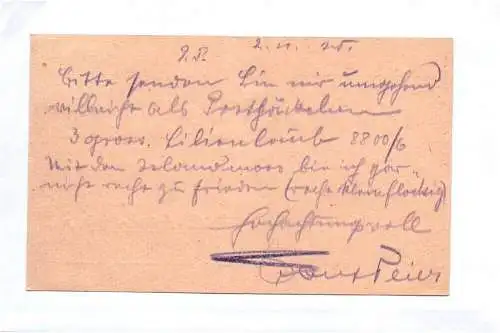 2. 11. 25.
Bitte senden Sie mir umgehend
vielleicht als Postpäckchen
3 gross. Lilienlaub 8800/6
Mit dem bin ich gar
nicht recht zu frieden (recht kleinflockig)
Hochachtungsvoll